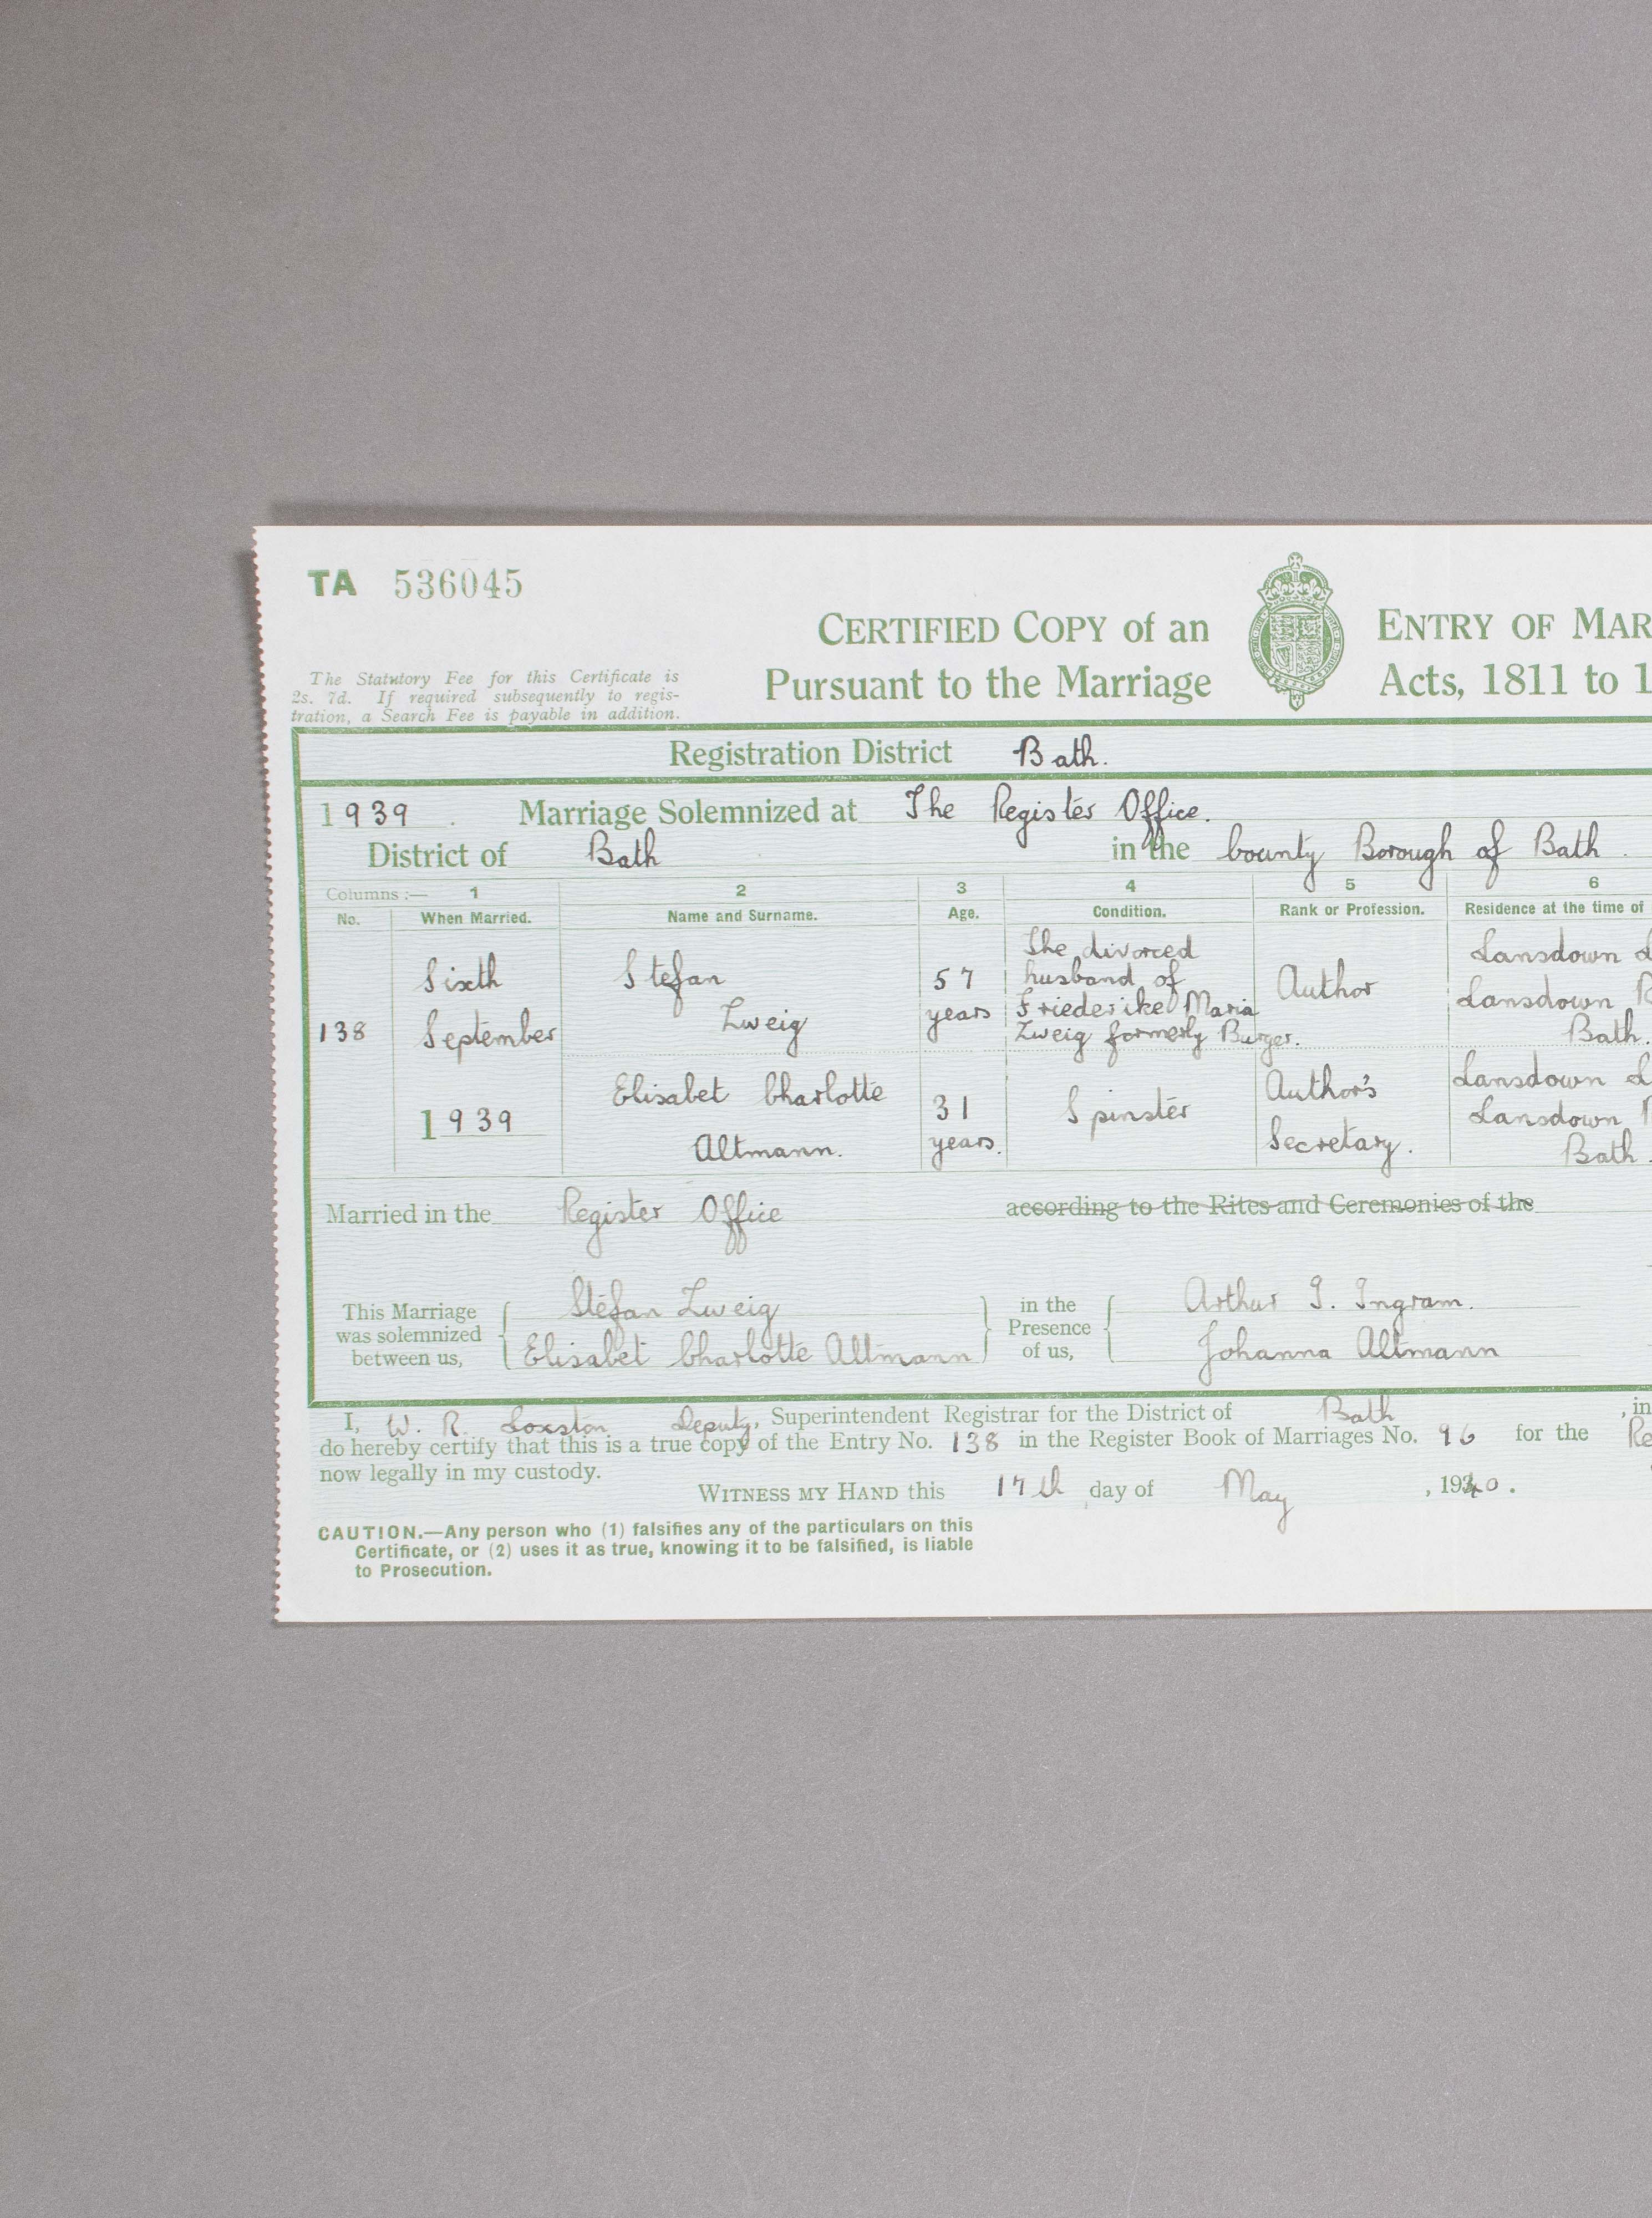 TA 536045
CERTIFIED COPY of an ENTRY OF MAR
Pursuant to the Marriage Acts, 1811 to 1
The Statutory Fee for this Certificate is
2s. 7d. If required subsequently to regis-
tration, a Search Fee is payable in addition.
Registration District Bath.
1939. Marriage Solemnized at The Register Office.
District of Bath in the County Borough of Bath.
Columns :— 1 2 3 4 5 6
No. When Married. Name and Surname. Age. Condition. Rank or Profession. Residence at the time of
138
Sixth
September
1939
Stefan
Zweig
57
years
The divorced
husband of
Friederike Maria
Zweig formerly Burger.
Author
Lansdown L
Lansdown R
Bath.
Elisabet Charlotte
Altmann.
31
years.
Spinster
Author's
Secretary.
Lansdown L
Lansdown
Bath.
Married in the Register Office according to the Rites and Ceremonies of the
This Marriage
was solemnized
between us,
Stefan Zweig
Elisabet Charlotte Altmann
in the
Presence
of us,
Arthur I. Ingram.
Johanna Altmann
I, W. R. Loxston Deputy, Superintendent Registrar for the District of Bath, in
do hereby certify that this is a true copy of the Entry No. 138 in the Register Book of Marriages No. 96 for the Re
now legally in my custody.
WITNESS MY HAND this 17th day of May, 1940.
CAUTION.—Any person who (1) falsifies any of the particulars on this
Certificate, or (2) uses it as true, knowing it to be falsified, is liable
to Prosecution.